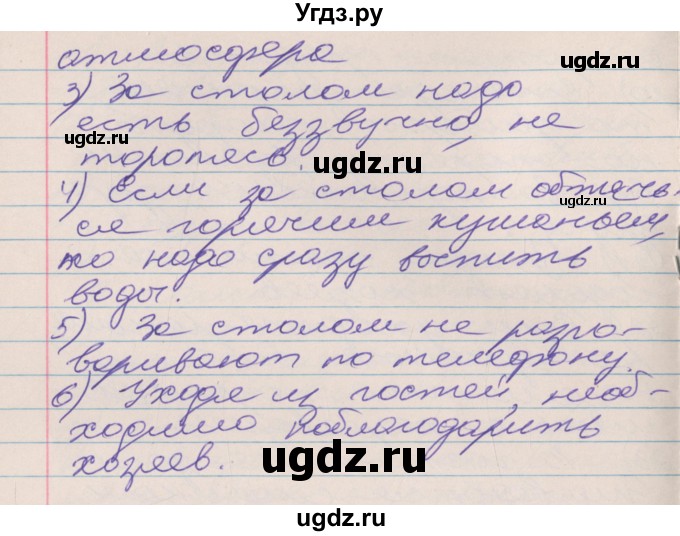 Угдз.ру
атмосфера
ugdz.ru
ugdz.ru
3) За столом надо
есть беззвучно, не
торопясь.
ugdz.ru
ugdz.ru
4) Если за столом обжечь-
ся горячим кушаньем,
ugdz.ru
то надо сразу выпить
воды.
5) За столом не разго-
варивают по телефону.
ugdz.ru
6) Уходя из гостей, необ-
ходимо поблагодарить
хозяев.
ugdz.ru
ugdz.ru
ugdz.ru